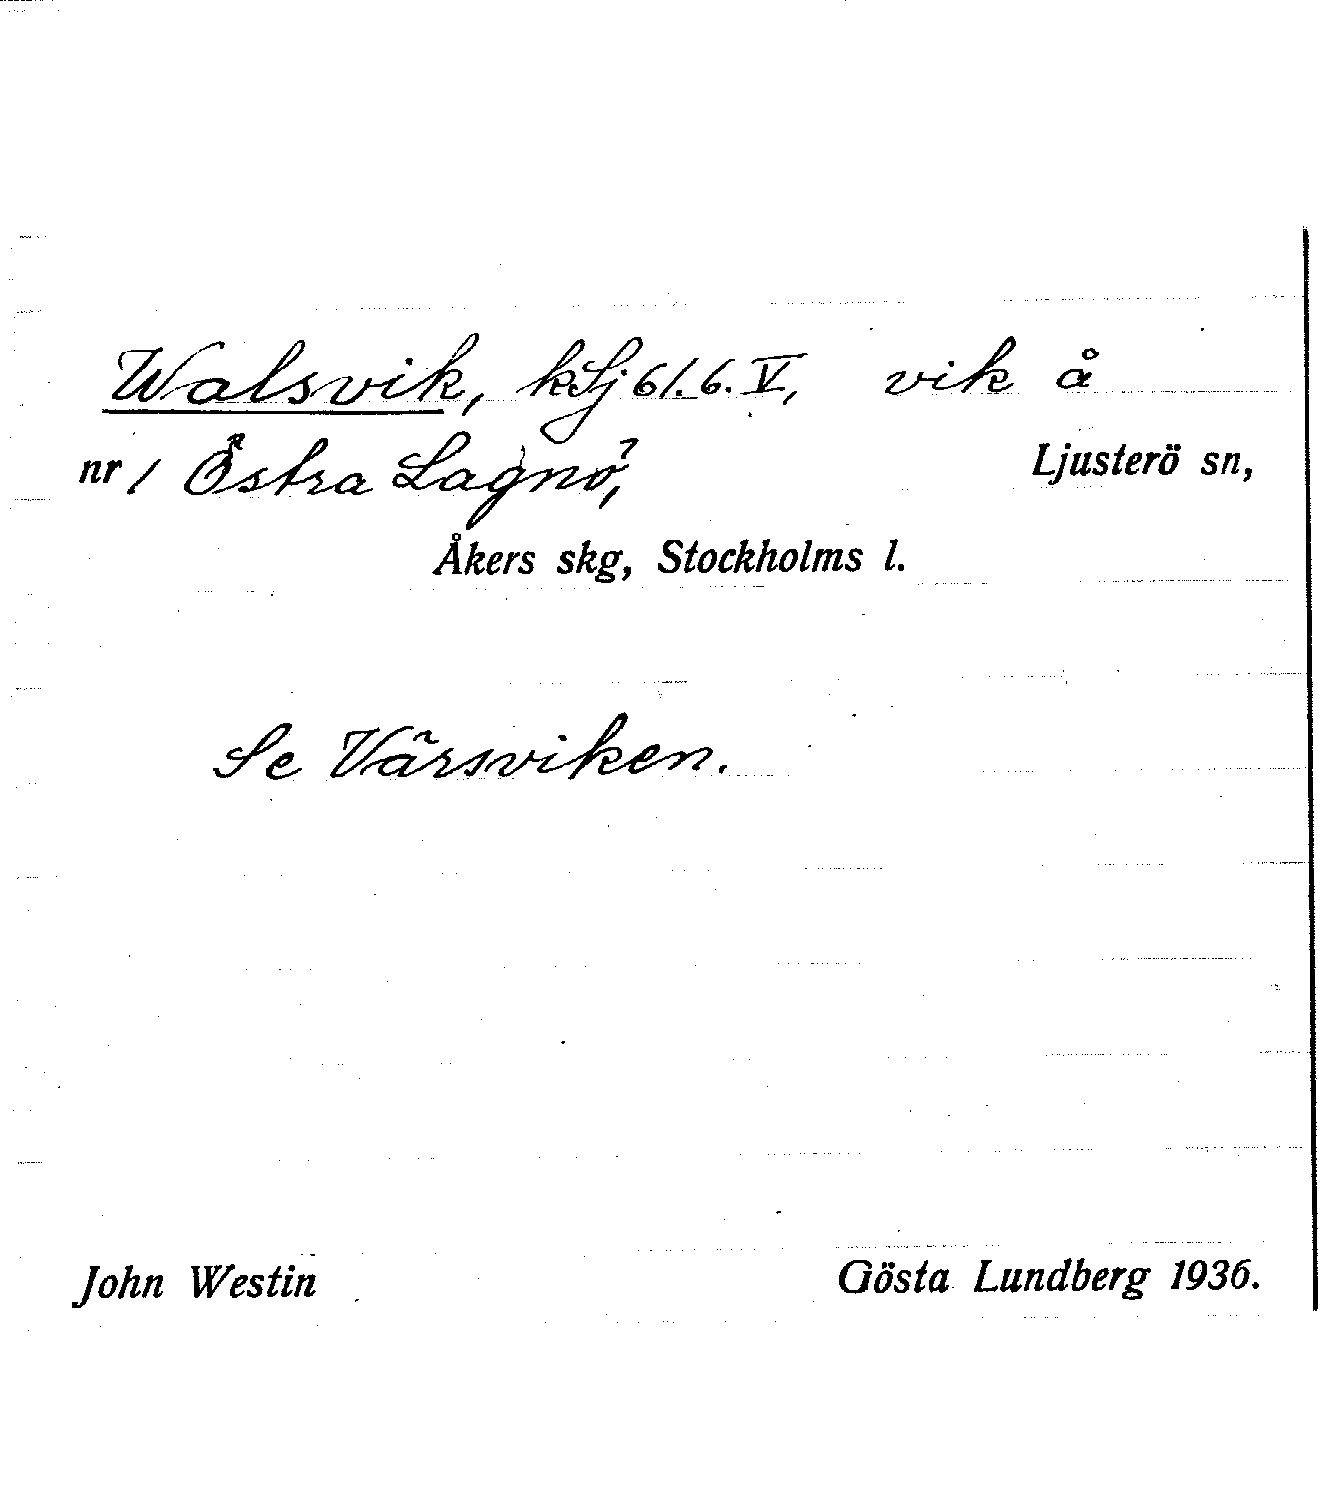 Walsvik, kSj 61.6.V, vik å
nr 1 Östra Lagnö, Ljusterö sn,
Åkers skg, Stockholms l.
Se Värsviken.
John Westin Gösta Lundberg 1936.